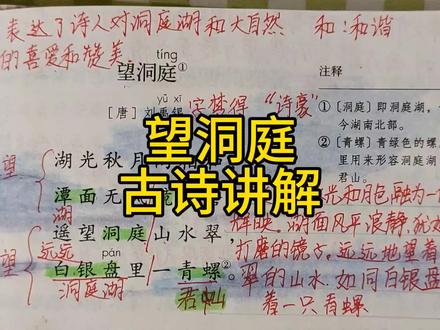 表达了诗人对洞庭湖和大自然 和:和谐
的喜爱和赞美
tíng
望洞庭①
注释
yǔ xī
[唐] 刘禹锡 字梦得 “诗豪”
①〔洞庭〕即洞庭湖,
今湖南北部。
②〔青螺〕青绿色的螺,
里用来形容洞庭湖
君山。
望洞庭
古诗讲解
望
湖光秋月
潭面无
湖
光和月色融为一
辉映。湖面风平浪静,犹如
打磨的镜子。远远地望着
翠的山水,如同白银盘
着一只青螺
望
遥望洞庭山水翠,
远远
pán
白银盘里一青螺②。
洞庭湖
君山